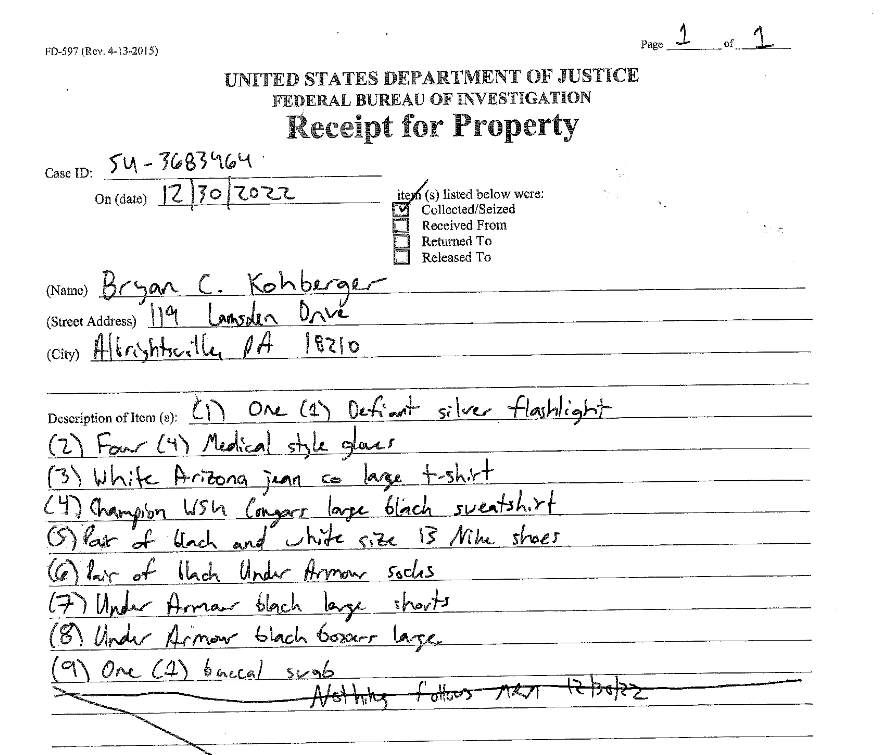 FD-597 (Rev. 4-13-2015)
Page 1 of 1
UNITED STATES DEPARTMENT OF JUSTICE
FEDERAL BUREAU OF INVESTIGATION
Receipt for Property
Case ID: SU-3683464
On (date) 12/30/2022
item (s) listed below were:
Collected/Seized
Received From
Returned To
Released To
(Name) Bryan C. Kohberger
(Street Address) 119 Lamsden Drive
(City) Albrightsville, PA 18210
Description of Item (s): (1) One (1) Defiant silver flashlight
(2) Four (4) Medical style gloves
(3) White Arizona jean co large t-shirt
(4) Champion WSU Cougars large black sweatshirt
(5) Pair of black and white size 13 Nike shoes
(6) Pair of black Under Armour socks
(7) Under Armour black large shorts
(8) Under Armour black boxers large
(9) One (1) buccal swab
Nothing follows 12/30/22